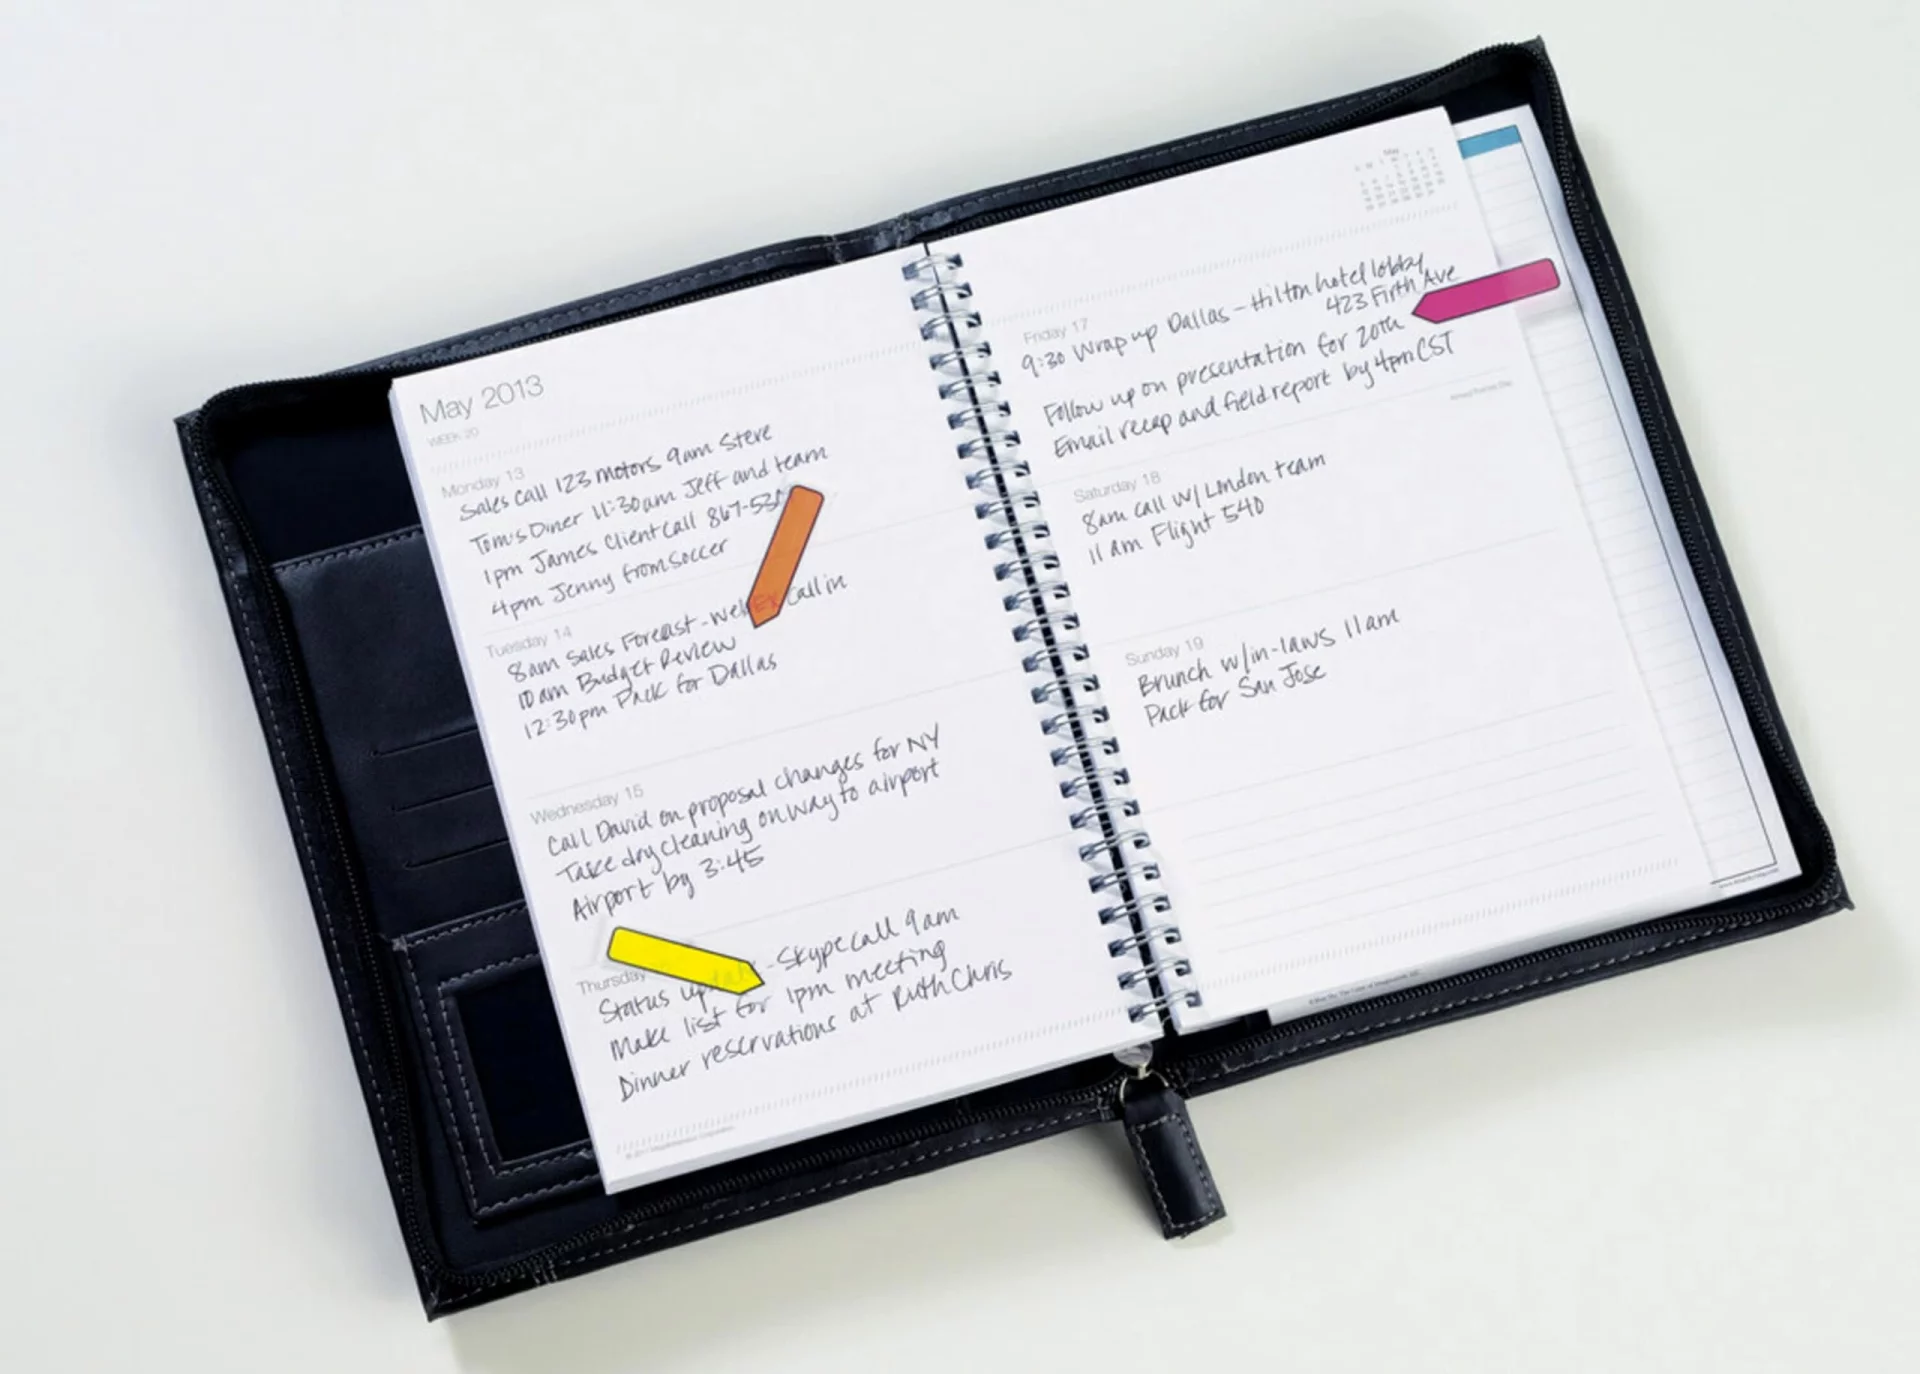 May 2013
WEEK 20
Monday 13
Sales call 123 Motors 9am Steve
Tom's Diner 11:30am Jeff and team
1pm James Client call 867-53
4pm Jenny from soccer
Tuesday 14
8am Sales Forecast - WebEx Call in
10am Budget Review
12:30pm Pack for Dallas
Wednesday 15
Call David on proposal changes for NY
Take dry cleaning on way to airport
Airport by 3:45
Thursday
Status update - Skype call 9am
Make list for 1pm meeting
Dinner reservations at Ruth Chris
May
Friday 17
9:30 Wrap up Dallas - Hilton hotel lobby
423 Firth Ave
Follow up on presentation for 20th
Email recap and field report by 4pm CST
Armed Forces Day
Saturday 18
8am call w/ London team
11am Flight 540
Sunday 19
Brunch w/in-laws 11am
Pack for San Jose